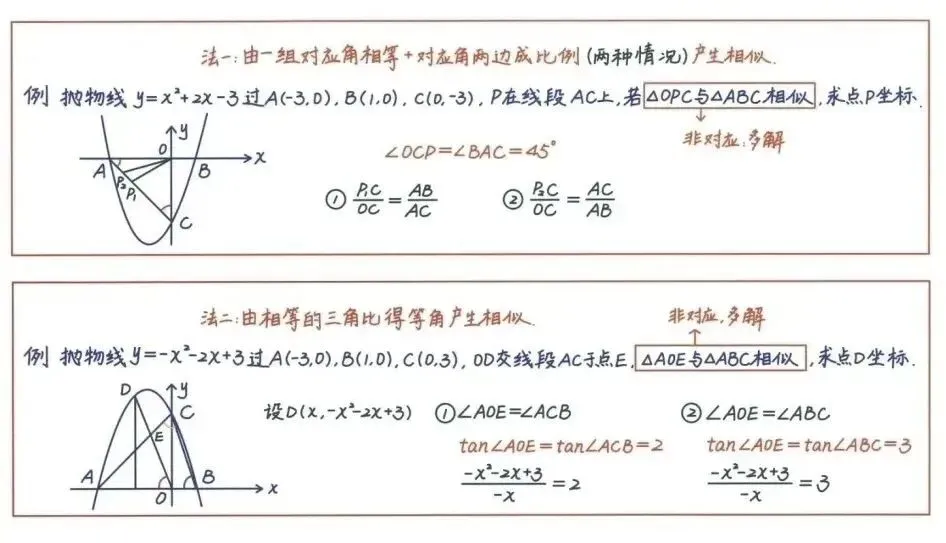 法一:由一组对应角相等+对应角两边成比例(两种情况)产生相似.
例 抛物线 y=x²+2x-3过A(-3,0), B(1,0), C(0,-3), P在线段AC上,若△OPC与△ABC相似,求点P坐标.
非对应,多解
y
O
x
A
B
P₂
P₁
C
∠OCP=∠BAC=45°
① P₁C/OC=AB/AC ② P₂C/OC=AC/AB
法二:由相等的三角比得等角产生相似.
非对应,多解
例 抛物线y=-x²-2x+3过A(-3,0),B(1,0),C(0,3), OD交线段AC于点E,△AOE与△ABC相似,求点D坐标.
D
y
C
E
A
O
B
x
设D(x,-x²-2x+3) ①∠AOE=∠ACB ②∠AOE=∠ABC
tan∠AOE=tan∠ACB=2 tan∠AOE=tan∠ABC=3
(-x²-2x+3)/(-x)=2 (-x²-2x+3)/(-x)=3